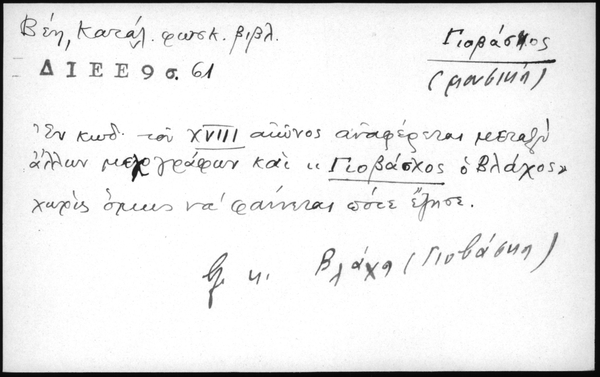 Βέη, Κατάλ. φωσκ. βιβλ.
Γιοβάσκος
ΔΙΕΕ 9 σ. 61
(μουσική)
Ἐν κωδ. τοῦ XVIII αἰῶνος ἀναφέρεται μεταξὺ
ἄλλων μελογράφων καὶ «Γιοβάσχος ὁ Βλάχος»
χωρὶς ὅμως νὰ φαίνεται πότε ἔζησε.
κ. Βλάχη (Γιοβάσκη)